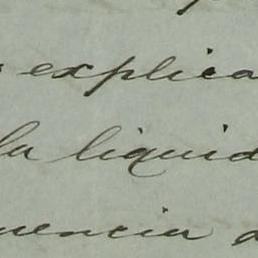 explica
la liquid
uencia